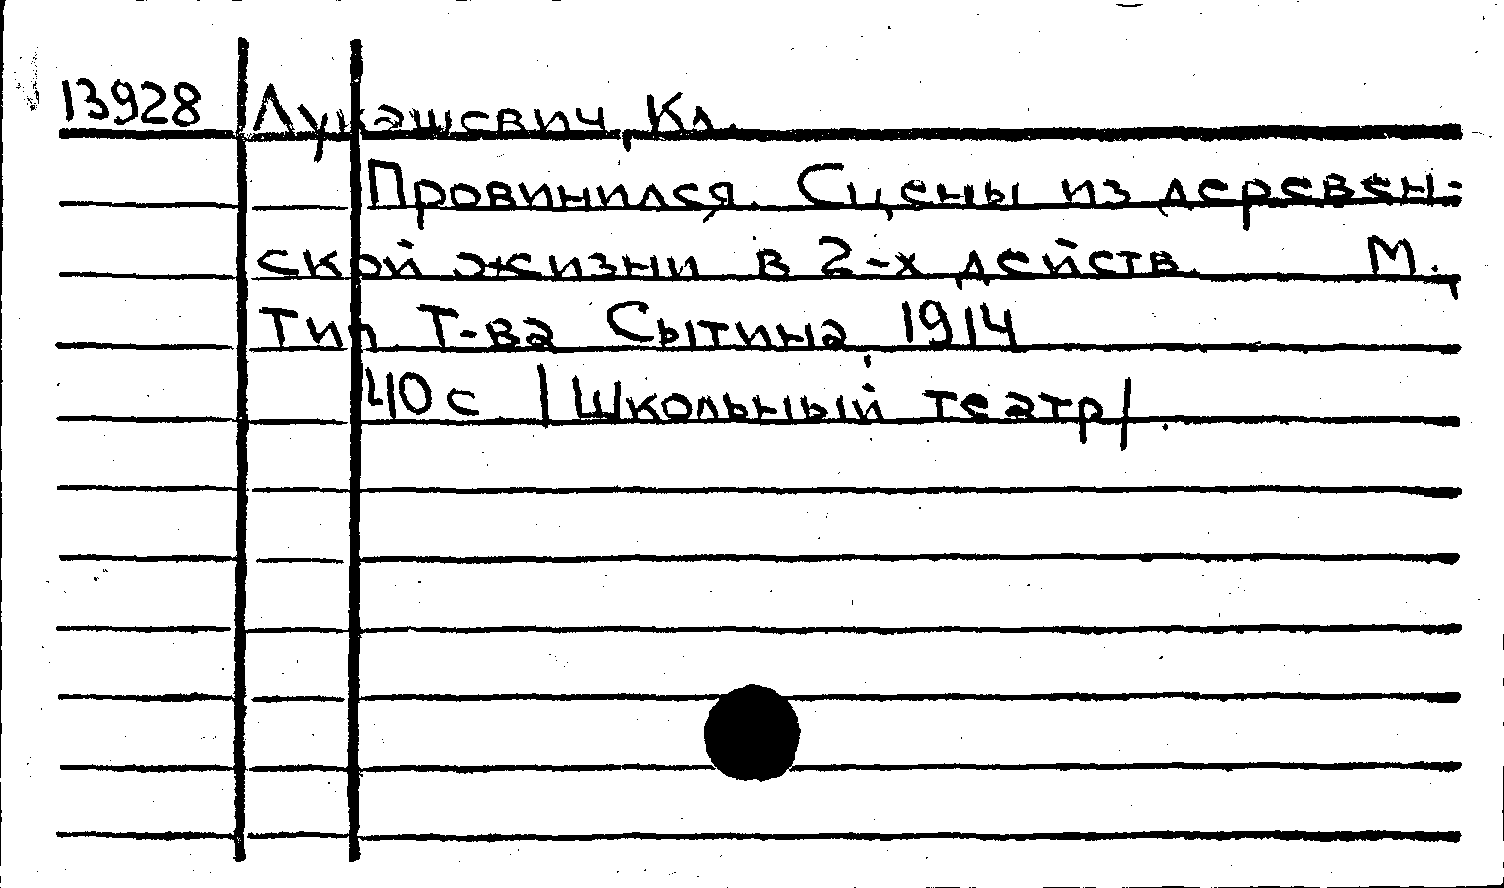 13928 Лукашевич, Кл.
Провинился. Сцены из деревен-
ской жизни в 2-х действ. М.,
Тип. Т-ва Сытина, 1914
40 с /Школьный театр/.